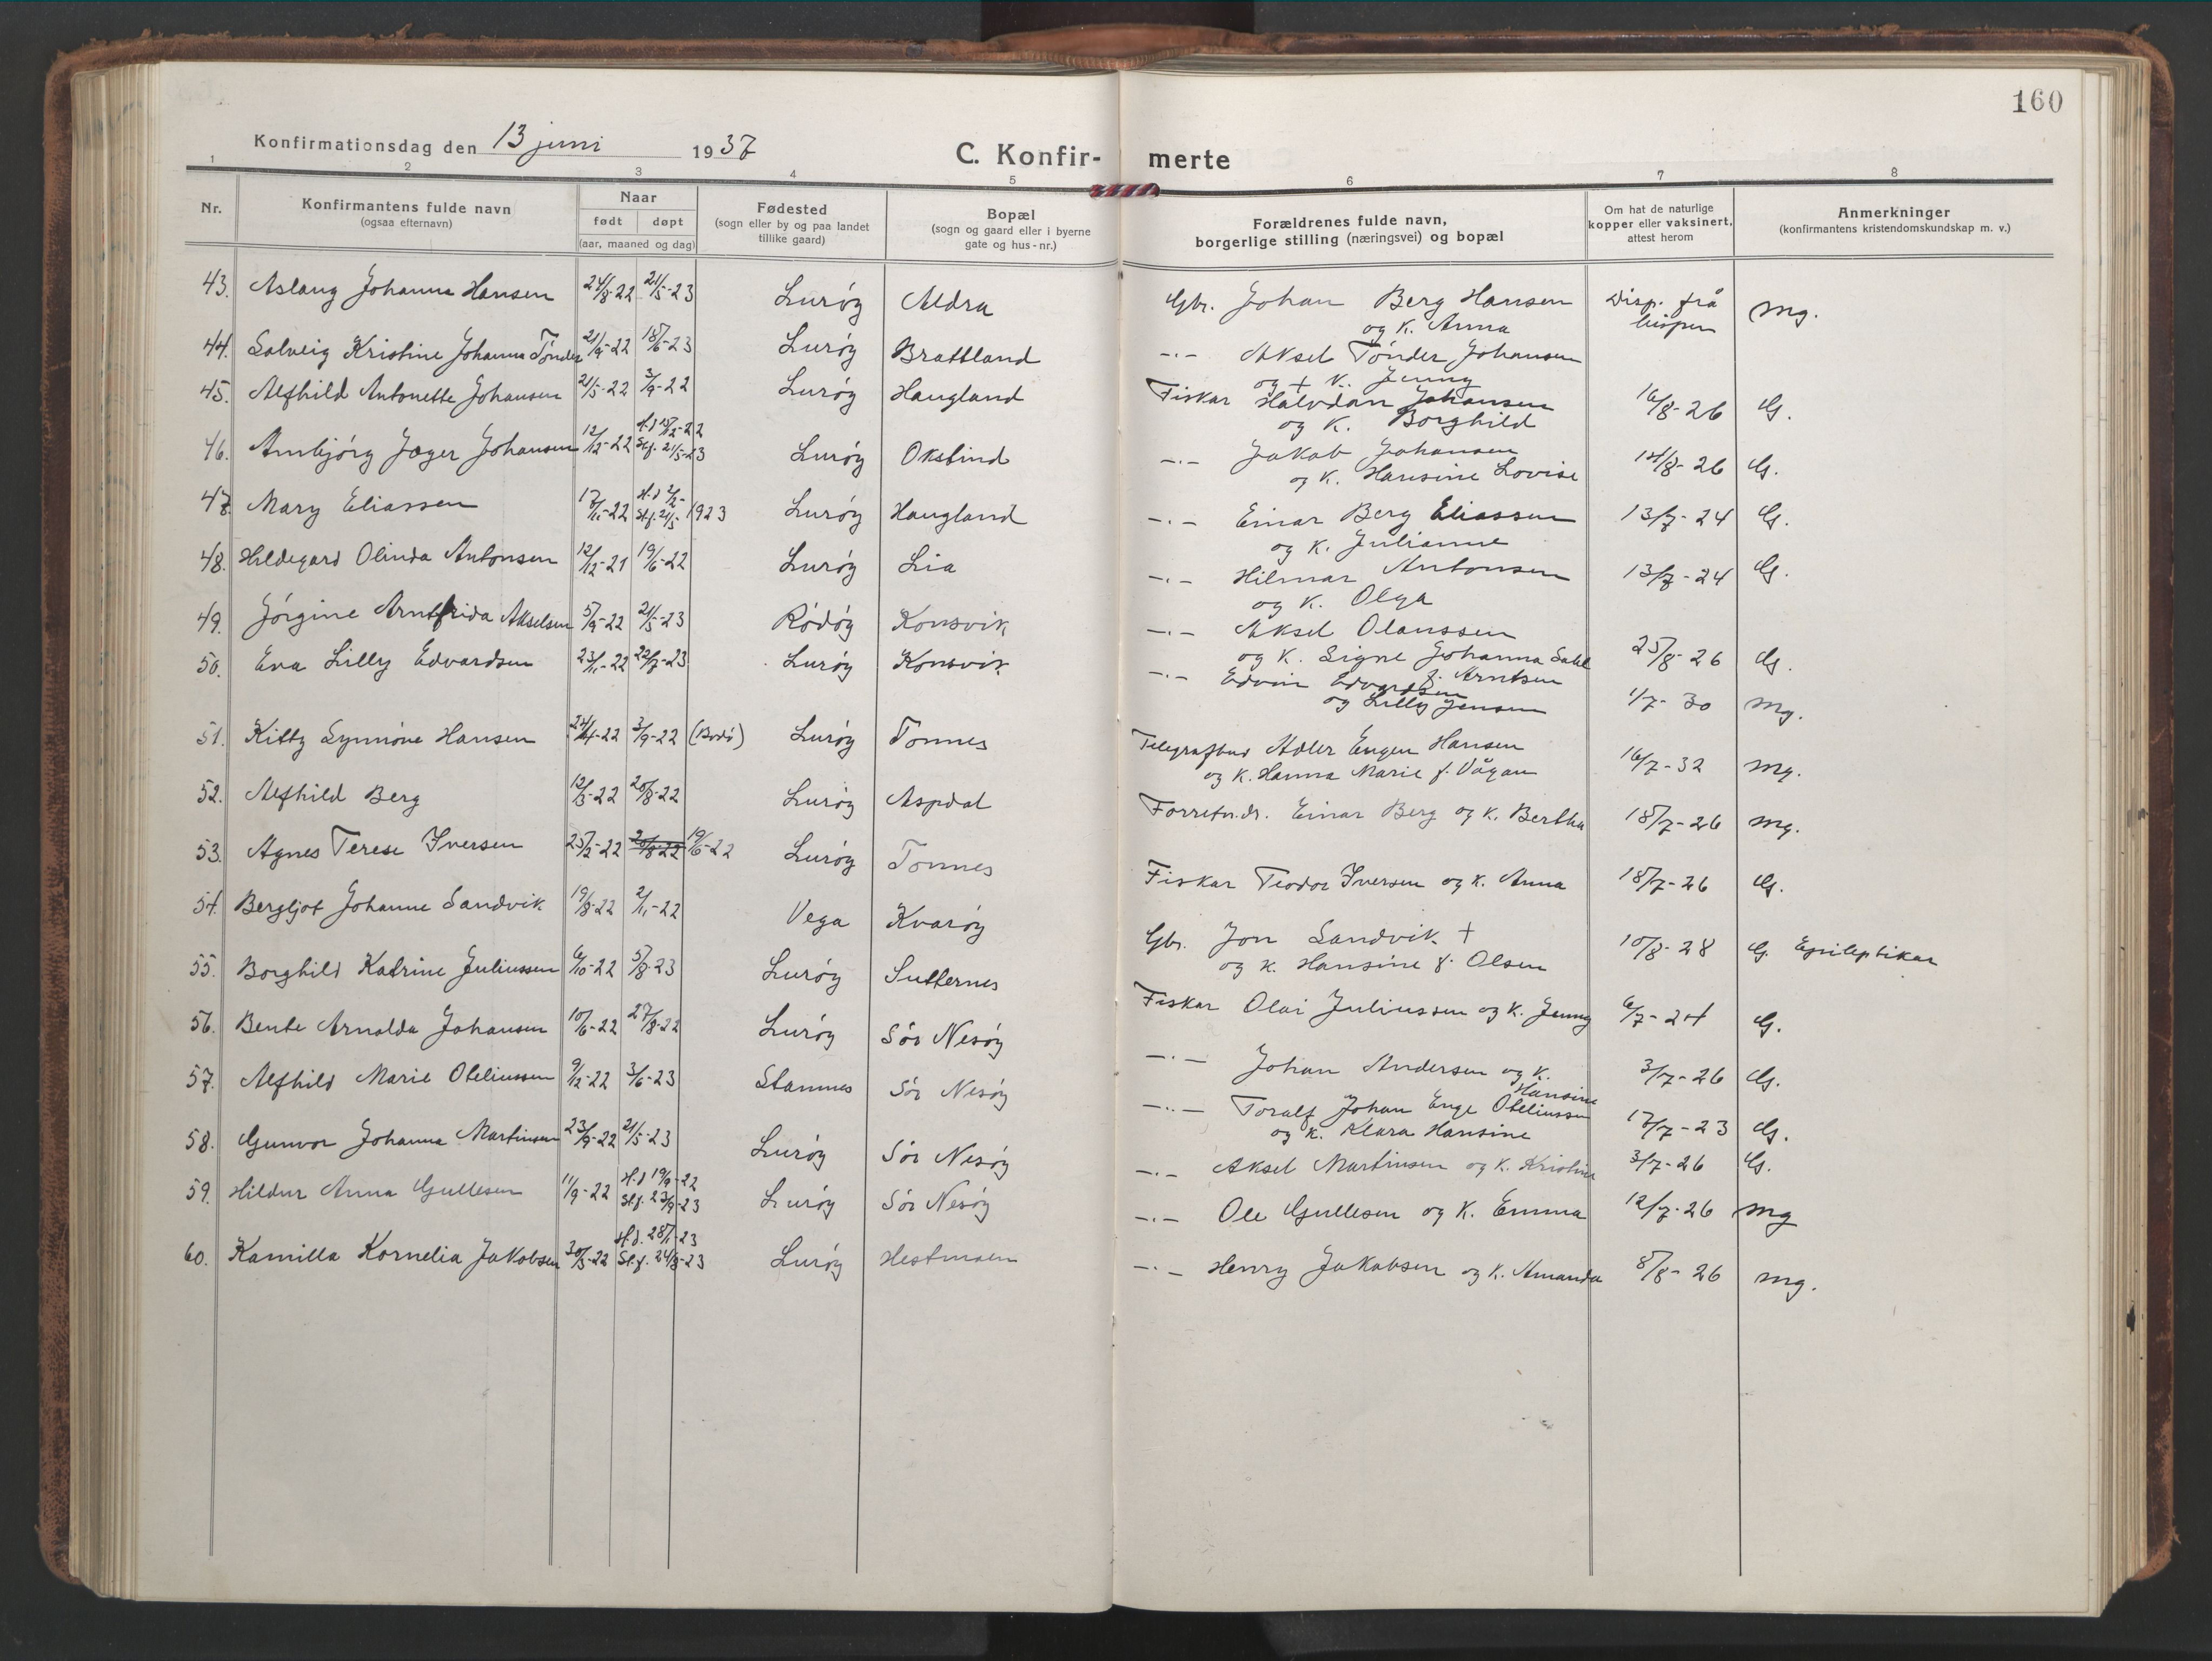 160
Konfirmationsdag den 13 juni 1937
C. Konfir- merte
1 2 3 4 5 6 7 8
Nr.
Konfirmantens fulde navn
(ogsaa efternavn)
Naar
født døpt
(aar, maaned og dag)
Fødested
(sogn eller by og paa landet
tillike gaard)
Bopæl
(sogn og gaard eller i byerne
gate og hus-nr.)
Forældrenes fulde navn,
borgerlige stilling (næringsvei) og bopæl
Om hat de naturlige
kopper eller vaksinert,
attest herom
Anmerkninger
(konfirmantens kristendomskundskap m. v.)
43. Aslaug Johanna Hansen 24/8-22 21/5-23 Lurøy Aldra Gbr. Johan Berg Hansen Disp. frå mg.
og k. Anna bispen
44. Solveig Kristine Johanna Tønder 21/9-22 18/6-23 Lurøy Brattland -.- Aksel Tønder Johansen
og + k. Jenny
45. Alfhild Antonette Johansen 21/5-22 3/9-22 Lurøy Haugland Fiskar Halvdan Johansen 16/8-26 G.
og k. Borghild
46. Annbjørg Jæger Johansen 12/12-22 H.d 15/12-22 Lurøy Oksbind -.- Jakob Johansen 14/8-26 G.
St.f. 21/5-23 og k. Hansine Lovise
47. Mary Eliassen 17/11-22 H.d 2/2- St.f. 21/5- 1923 Lurøy Haugland -.- Einar Berg Eliassen 13/7-24 G.
og k. Julianne
48. Hildegard Olinda Antonsen 12/12-21 19/6-22 Lurøy Lia -.- Hilmar Antonsen 13/7-24 G.
og k. Olga
49. Jørgine Arntfrida Akselsen 5/9-22 21/5-23 Rødøy Konsvik -.- Aksel Olaussen
og k. Signe Johanna 25/8-26 G.
f. Arntsen
50. Eva Lilly Edvardsen 23/11-22 22/7-23 Lurøy Konsvik -.- Edvin Edvardsen
og Lilly Jensen 1/7-30 mg.
51. Kitty Synnøve Hansen 24/4-22 3/9-22 (Bodø) Lurøy Tonnes Telegrafbud Adler Eugen Hansen 16/7-32 mg.
og k. Hanna Marie f. Vågan
52. Alfhild Berg 12/3-22 20/8-22 Lurøy Aspdal Forretn.dr. Einar Berg og k. Bertha 18/7-26 mg.
53. Agnes Terese Iversen 25/2-22 20/8-22 19/6-22 Lurøy Tonnes Fiskar Teodor Iversen og k. Anna 18/7-26 G.
54. Bergljot Johanne Sandvik 19/8-22 2/11-22 Vega Kvarøy Gbr. Jon Sandvik + 10/8-28 G. Epileptikar
og k. Hansine f. Olsen
55. Borghild Katrine Juliussen 6/10-22 5/8-23 Lurøy Sutternes Fiskar Olai Juliussen og k. Jenny 6/7-24 G.
56. Bente Arnalda Johansen 10/6-22 27/8-22 Lurøy Sør Nesøy -.- Johan Andersen og k. 3/7-26 G.
Hansine
57. Alfhild Marie Oteliussen 9/12-22 3/6-23 Stamnes Sør Nesøy -.- Toralf Johan Enge Oteliussen 17/7-23 G.
og k. Klara Hansine
58. Gunvor Johanna Martinsen 23/9-22 21/5-23 Lurøy Sør Nesøy -.- Aksel Martinsen og k. Kristine 3/7-26 G.
59. Hildur Anna Gullesen 11/9-22 H.d 19/9-22 Lurøy Sør Nesøy -.- Ole Gullesen og k. Emma 12/7-26 mg
St.f. 23/9-23
60. Kamilla Kornelia Jakobsen 30/5-22 H.d. 28/1-23 Lurøy Hestmoen -.- Henry Jakobsen og k. Amanda 8/8-26 mg.
St.f. 24/8-23